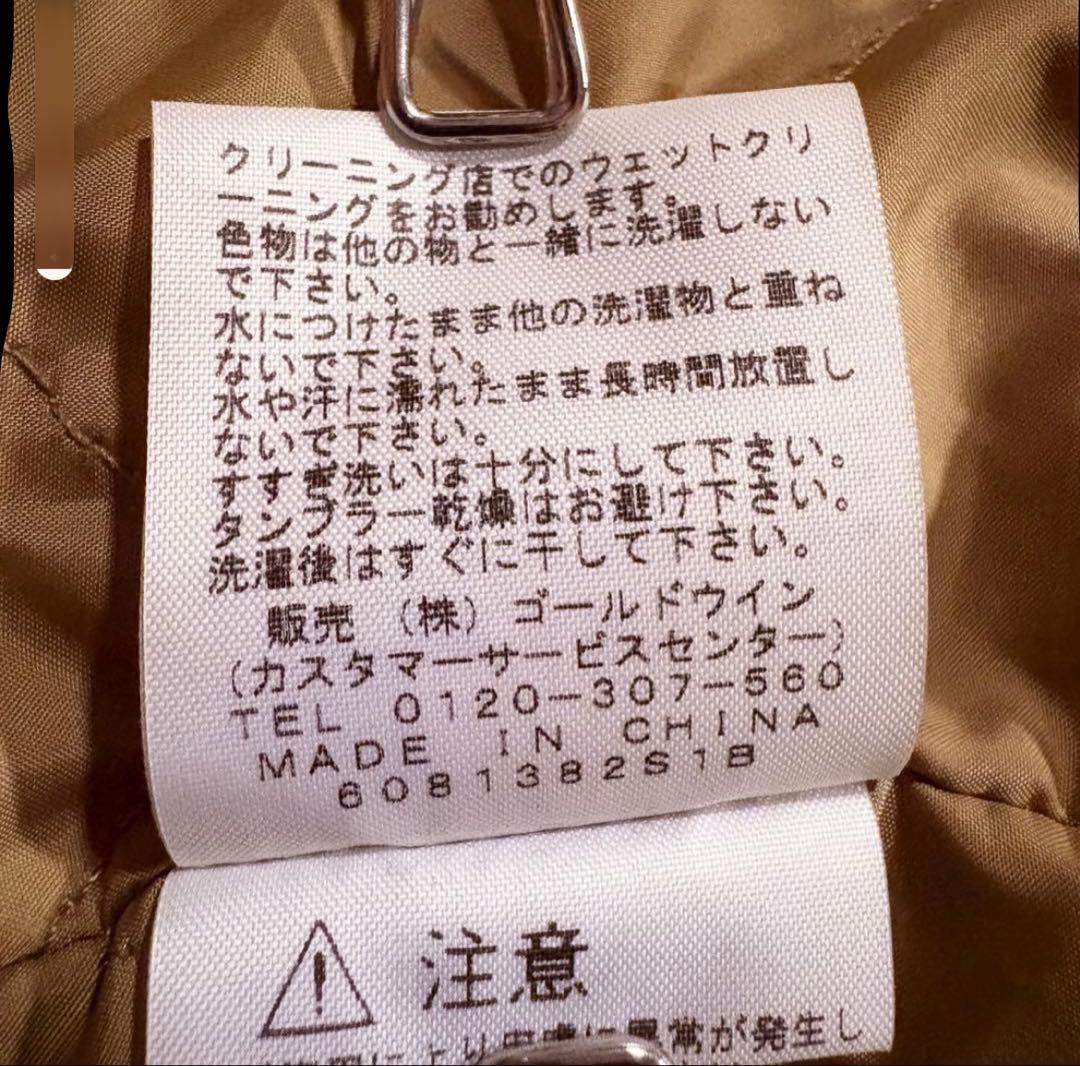 クリーニング店でのウェットクリ
ーニングをお勧めします。
色物は他の物と一緒に洗濯しない
で下さい。
水につけたまま他の洗濯物と重ね
ないで下さい。
水や汗に濡れたまま長時間放置し
ないで下さい。
すすぎ洗いは十分にして下さい。
タンブラー乾燥はお避け下さい。
洗濯後はすぐに干して下さい。
販売 (株) ゴールドウイン
(カスタマーサービスセンター)
TEL 0120-307-560
MADE IN CHINA
6081382S1B
注意
により皮膚に異常が発生し